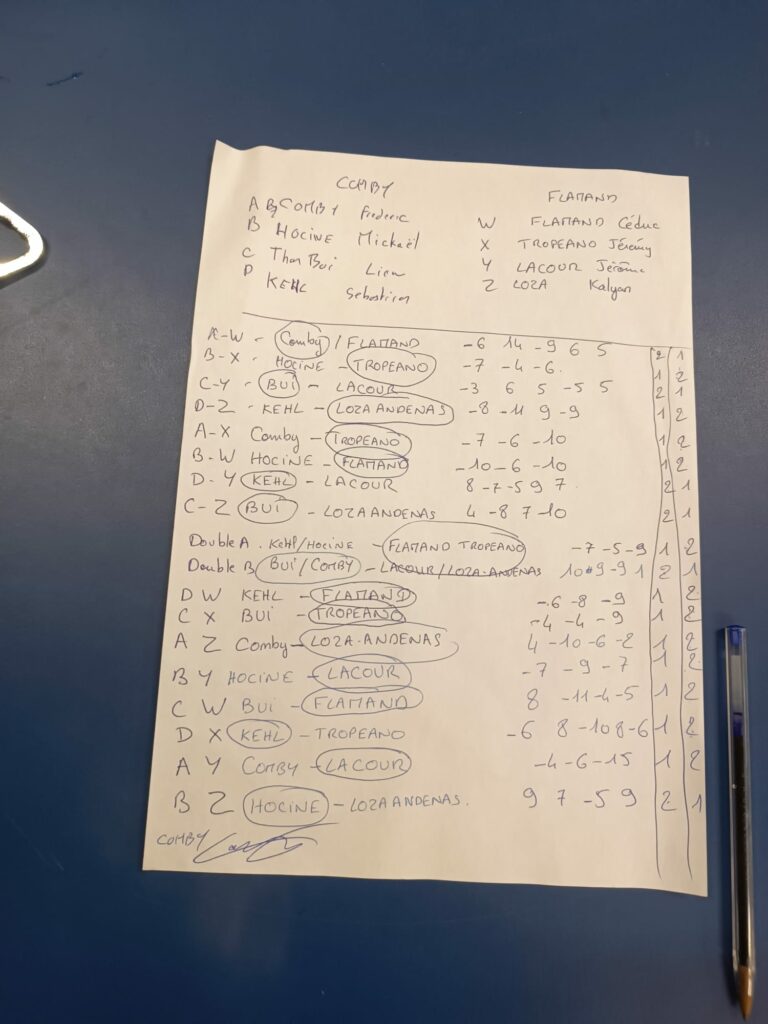 COMBY
A COMBY Frederic
B HOCINE Mickaël
C Than Bui Lieu
D KEHL Sebastien
FLAMAND
W FLAMAND Cédric
X TROPEANO Jérémy
Y LACOUR Jérôme
Z LOZA Kalyan
A-W - Comby / FLAMAND -6 14 -9 6 5 2 1
B-X - HOCINE - TROPEANO -7 -4 -6. 1 2
C-Y - BUI - LACOUR -3 6 5 -5 5 2 1
D-Z - KEHL - LOZA ANDENAS -8 -11 9 -9 1 2
A-X Comby - TROPEANO -7 -6 -10 1 2
B-W HOCINE - FLAMAND -10 -6 -10 1 2
D-Y KEHL - LACOUR 8 -7 -5 9 7 2 1
C-Z BUI - LOZA ANDENAS 4 -8 7 10 2 1
Double A . KEHL/HOCINE - FLAMAND TROPEANO -7 -5 -9 1 2
Double B BUI/COMBY - LACOUR/LOZA-ANDENAS 10 9 -9 1 2 1
D W KEHL - FLAMAND -6 -8 -9 1 2
C X BUI - TROPEANO -4 -4 -9 1 2
A Z Comby - LOZA-ANDENAS 4 -10 -6 -2 1 2
B Y HOCINE - LACOUR -7 -9 -7 1 2
C W BUI - FLAMAND 8 -11 -4 -5 1 2
D X KEHL - TROPEANO -6 8 -10 8 -6 1 2
A Y COMBY - LACOUR -4 -6 -15 1 2
B Z HOCINE - LOZA ANDENAS. 9 7 -5 9 2 1
COMBY